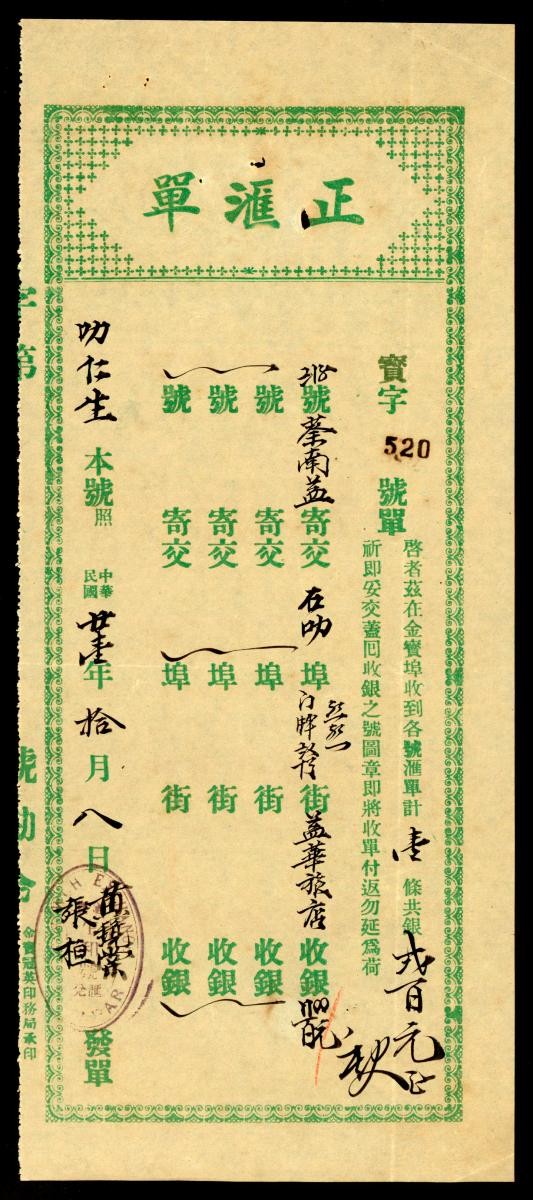 正滙單
寶字520號單
啓者茲在金寶埠收到各號滙單計壹條共銀弍百元正
祈即妥交蓋回收銀之號圖章即將收單付返勿延爲荷
號蔡南益寄交石叻埠街益華旅店收銀
號寄交埠街收銀
號寄交埠街收銀
號寄交埠街收銀
叻仁生本號照
中華民國廿壹年拾月八日發單
張桓
字第
金寶冠英印務局承印